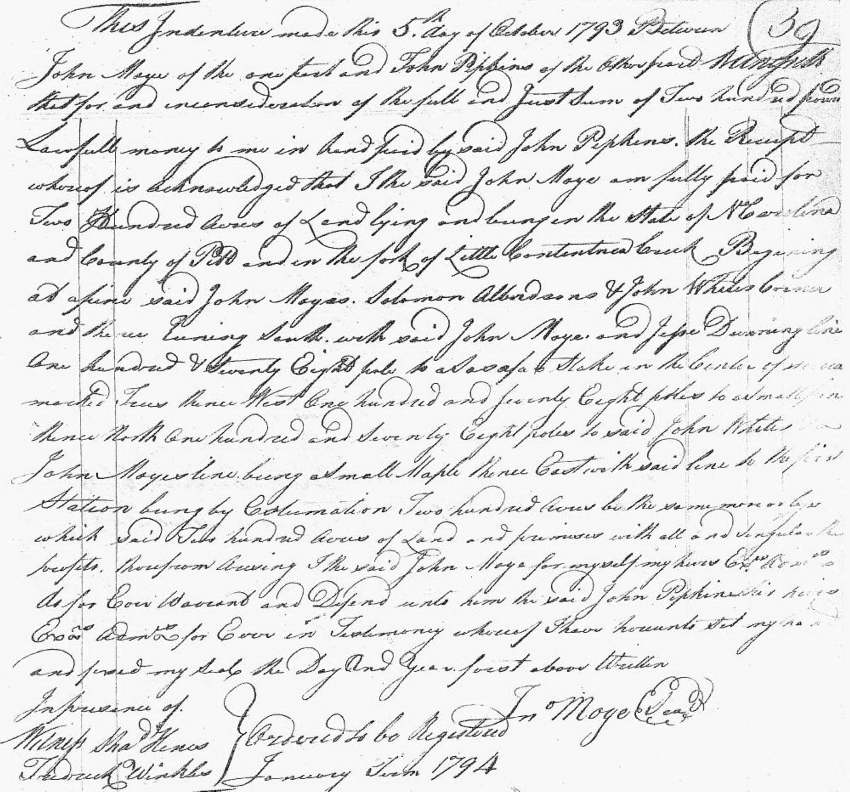 This Indenture made this 5.th day of October 1793 Between
39
John Moye of the one part and John Pipkins of the other part Witnesseth
that for and inconsideration of the full and Just Sum of Two hundred pound
Lawfull money to me in hand paid by said John Pipkins. the Receipt
whereof is acknowledged that I the said John Moye am fully paid for
Two Hundred Acres of Land lying and being in the State of N Carolina
and County of Pitt and in the fork of Little Contentnea Creek Begining
at a pine said John Moyes. Solomon Albordsons & John Whites Corner
and thence Runing South. with said John Moye. and Jesse Downing line
One hundred & Seventy Eight pole to a Sasafas Stake in the Center of
marked Trees thence West One hundred and seventy Eight poles to a small pin
thence North One hundred and Seventy Eight poles to said John Whites
John Moyes line being a small Maple thence East with said line to the first
Station being by Estimation Two hundred Acres be the same more or less
which said Two hundred Acres of Land and premises with all and singular the
profits. therefrom Arising I the said John Moye for myself my heirs Exrs Admrs
As for Ever Warrant and Defend unto him the said John Pipkins his heirs
Exors Admrs for Ever in Testimony whereof I have hereunto set my hand
and fixed my Seal the Day And Year first above Written
In presence of.
Jno Moye Seal
Witness Shad
Fredrick Winkles
Ordered to be Registered
January Term 1794